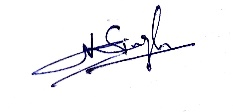 N Singh